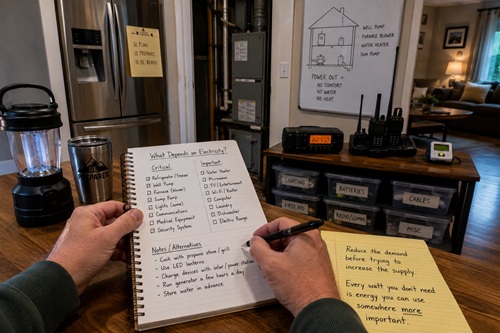 PLAN
PREPARE
BE READY
WELL PUMP
FURNACE BLOWER
WATER HEATER
SUM PUMP
POWER OUT =
NO COMFORT
NO WATER
NO HEAT
What Depends on Electricity?
Critical
Refrigerator/Freezer
Well Pump
Furnace (blower)
Sump Pump
Lights (some)
Communications
Medical Equipment
Security System
Important
Water Heater
Microwave
TV/Entertainment
Wi-Fi/Router
Computer
Laundry
Dishwasher
Electric Range
Notes / Alternatives
- Cook with propane stove / grill
- Use LED lanterns
- Charge devices with solar / power station
- Run generator a few hours a day
- Store water in advance
LIGHTING
BATTERIES
CABLES
FIRST AID
RADIO/COMM
MISC
Reduce the demand
before trying to
increase the supply.
Every watt you don't need
is energy you can use
somewhere more
important.